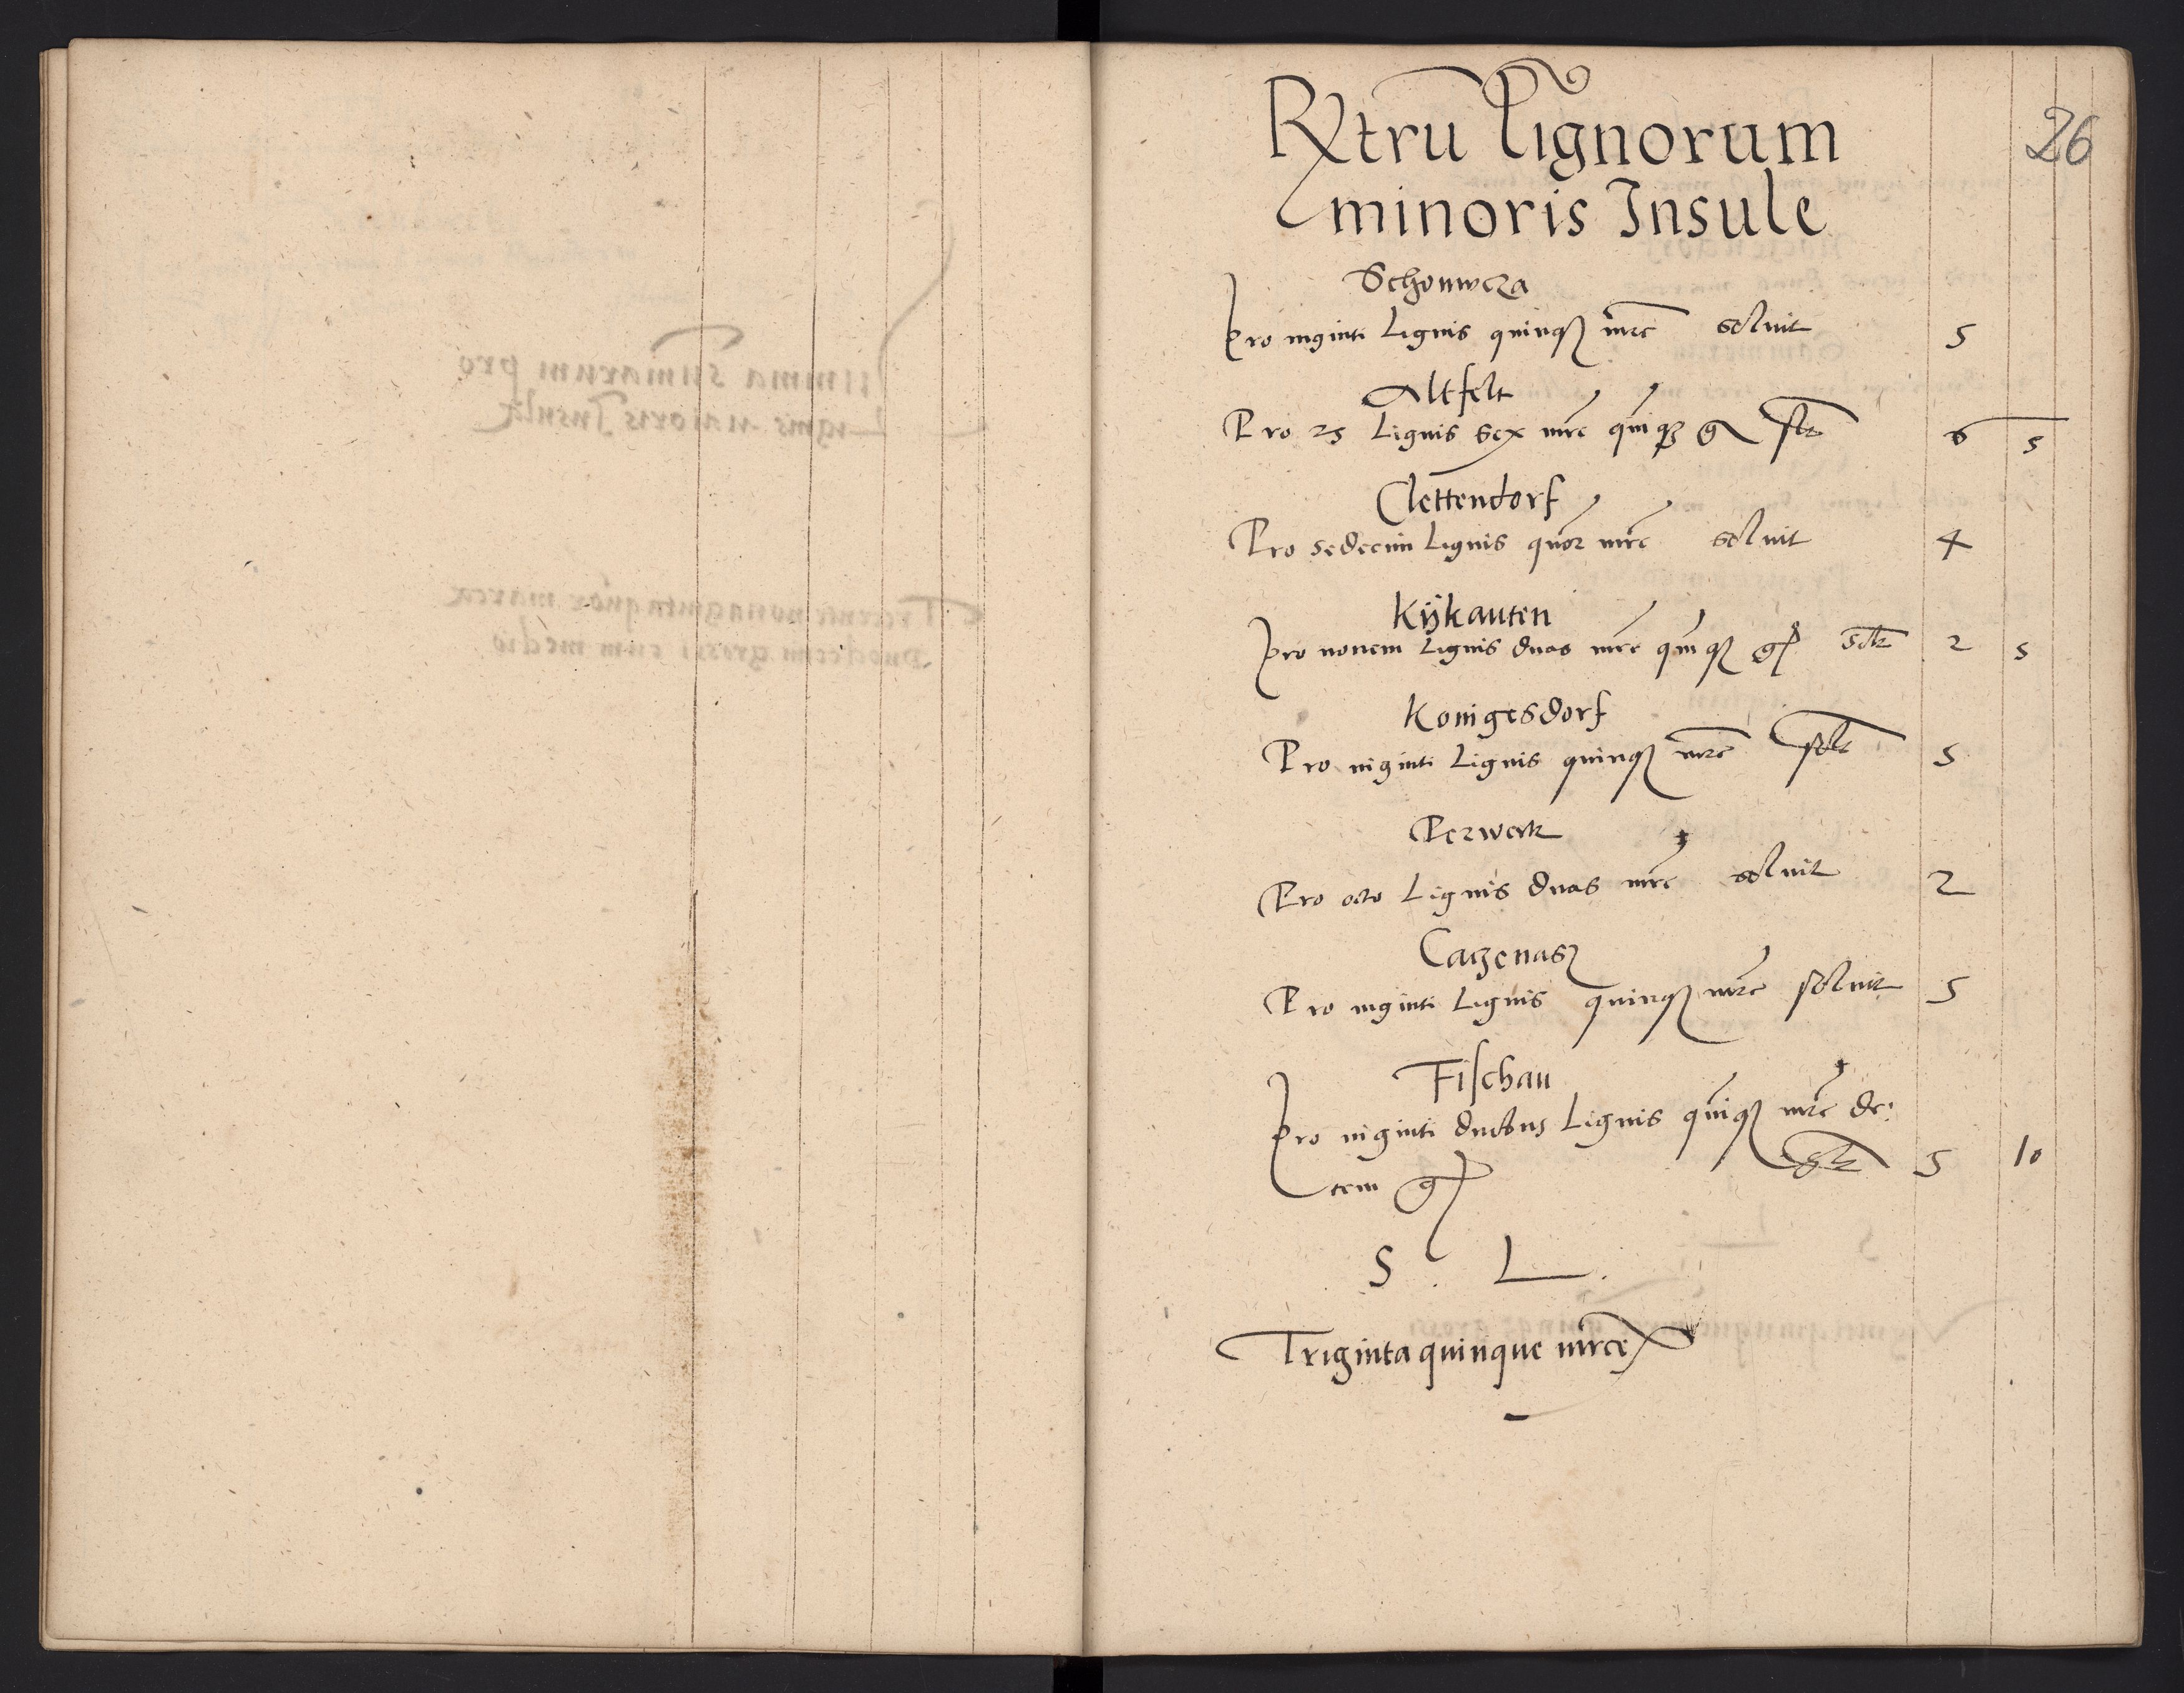 26
Rxtru Lignorum
minoris Insule
Schonweza
Pro viginti Lignis quinqȝ mrc soluit 5
Altfelt
Pro 25 Lignis Sex mrc quiqȝ g solt 6 5
Clettendorf
Pro sedecim Lignis quor mrc soluit 4
Kÿkauten
Pro novem Lignis duas mrc quiqȝ g solt 2 5
Konigesdorf
Pro viginti Lignis quinqȝ mrc solt 5
Perwerk
Pro octo Lignis duas mrc soluit 2
Caczenasz
Pro viginti Lignis quinqȝ mrc soluit 5
Fischau
Pro viginti duobus Lignis quiqȝ mrc de:
cem g solt 5 10
S . L .
Triginta quinque mrce